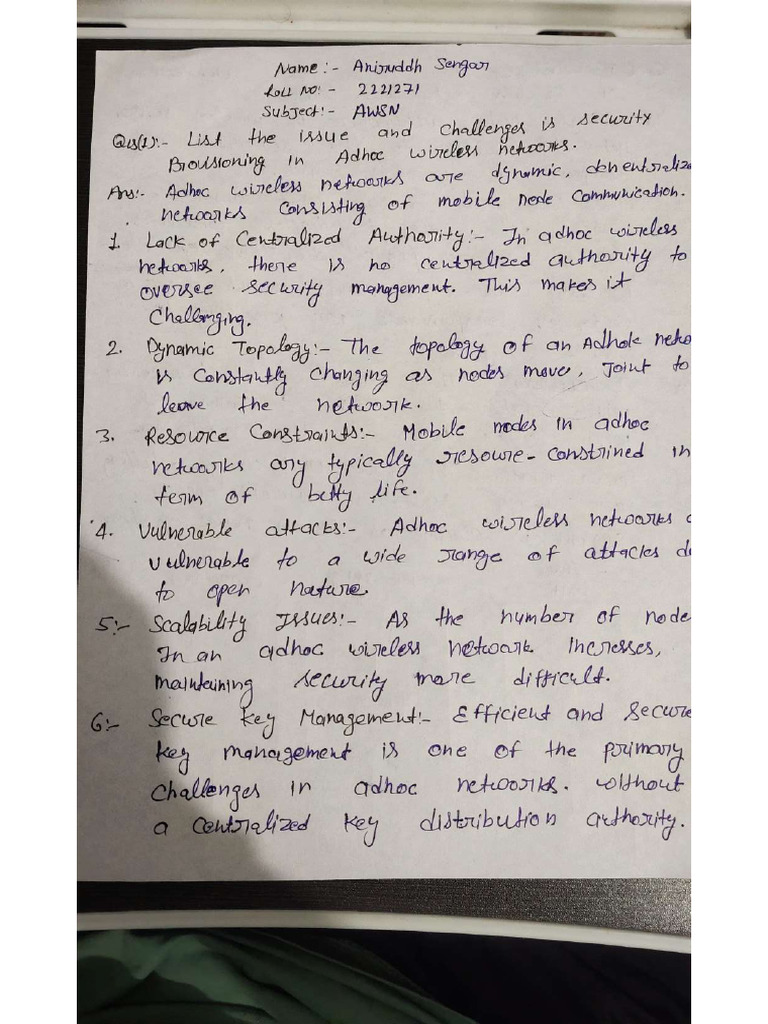 Name:- Aniruddh Sengar
Roll No:- 2221271
Subject:- AWSN
Qus(1):- List the issue and challenges is security
Provisioning in Adhoc wireless networks.
Ans:- Adhoc wireless networks are dynamic, denentralize
networks consisting of mobile node communication.
1. Lack of Centralized Authority:- In adhoc wireless
networks, there is no centralized authority to
oversee security management. This makes it
challenging.
2. Dynamic Topology:- The topology of an Adhok netwo
is constantly changing as nodes move, Joint to
leave the network.
3. Resource Constraints:- Mobile nodes in adhoc
networks any typically resoure-constrined in
term of betty life.
4. Vulnerable attacks:- Adhoc wireless networks a
vulnerable to a wide range of attacks du
to open nature.
5:- Scalability Issues:- As the number of node
In an adhoc wireless network Incresses,
maintaining security more difficult.
6:- Secure Key Management:- Efficient and secure
key management is one of the primary
challenges in adhoc networks. without
a centralized key distribution authority.